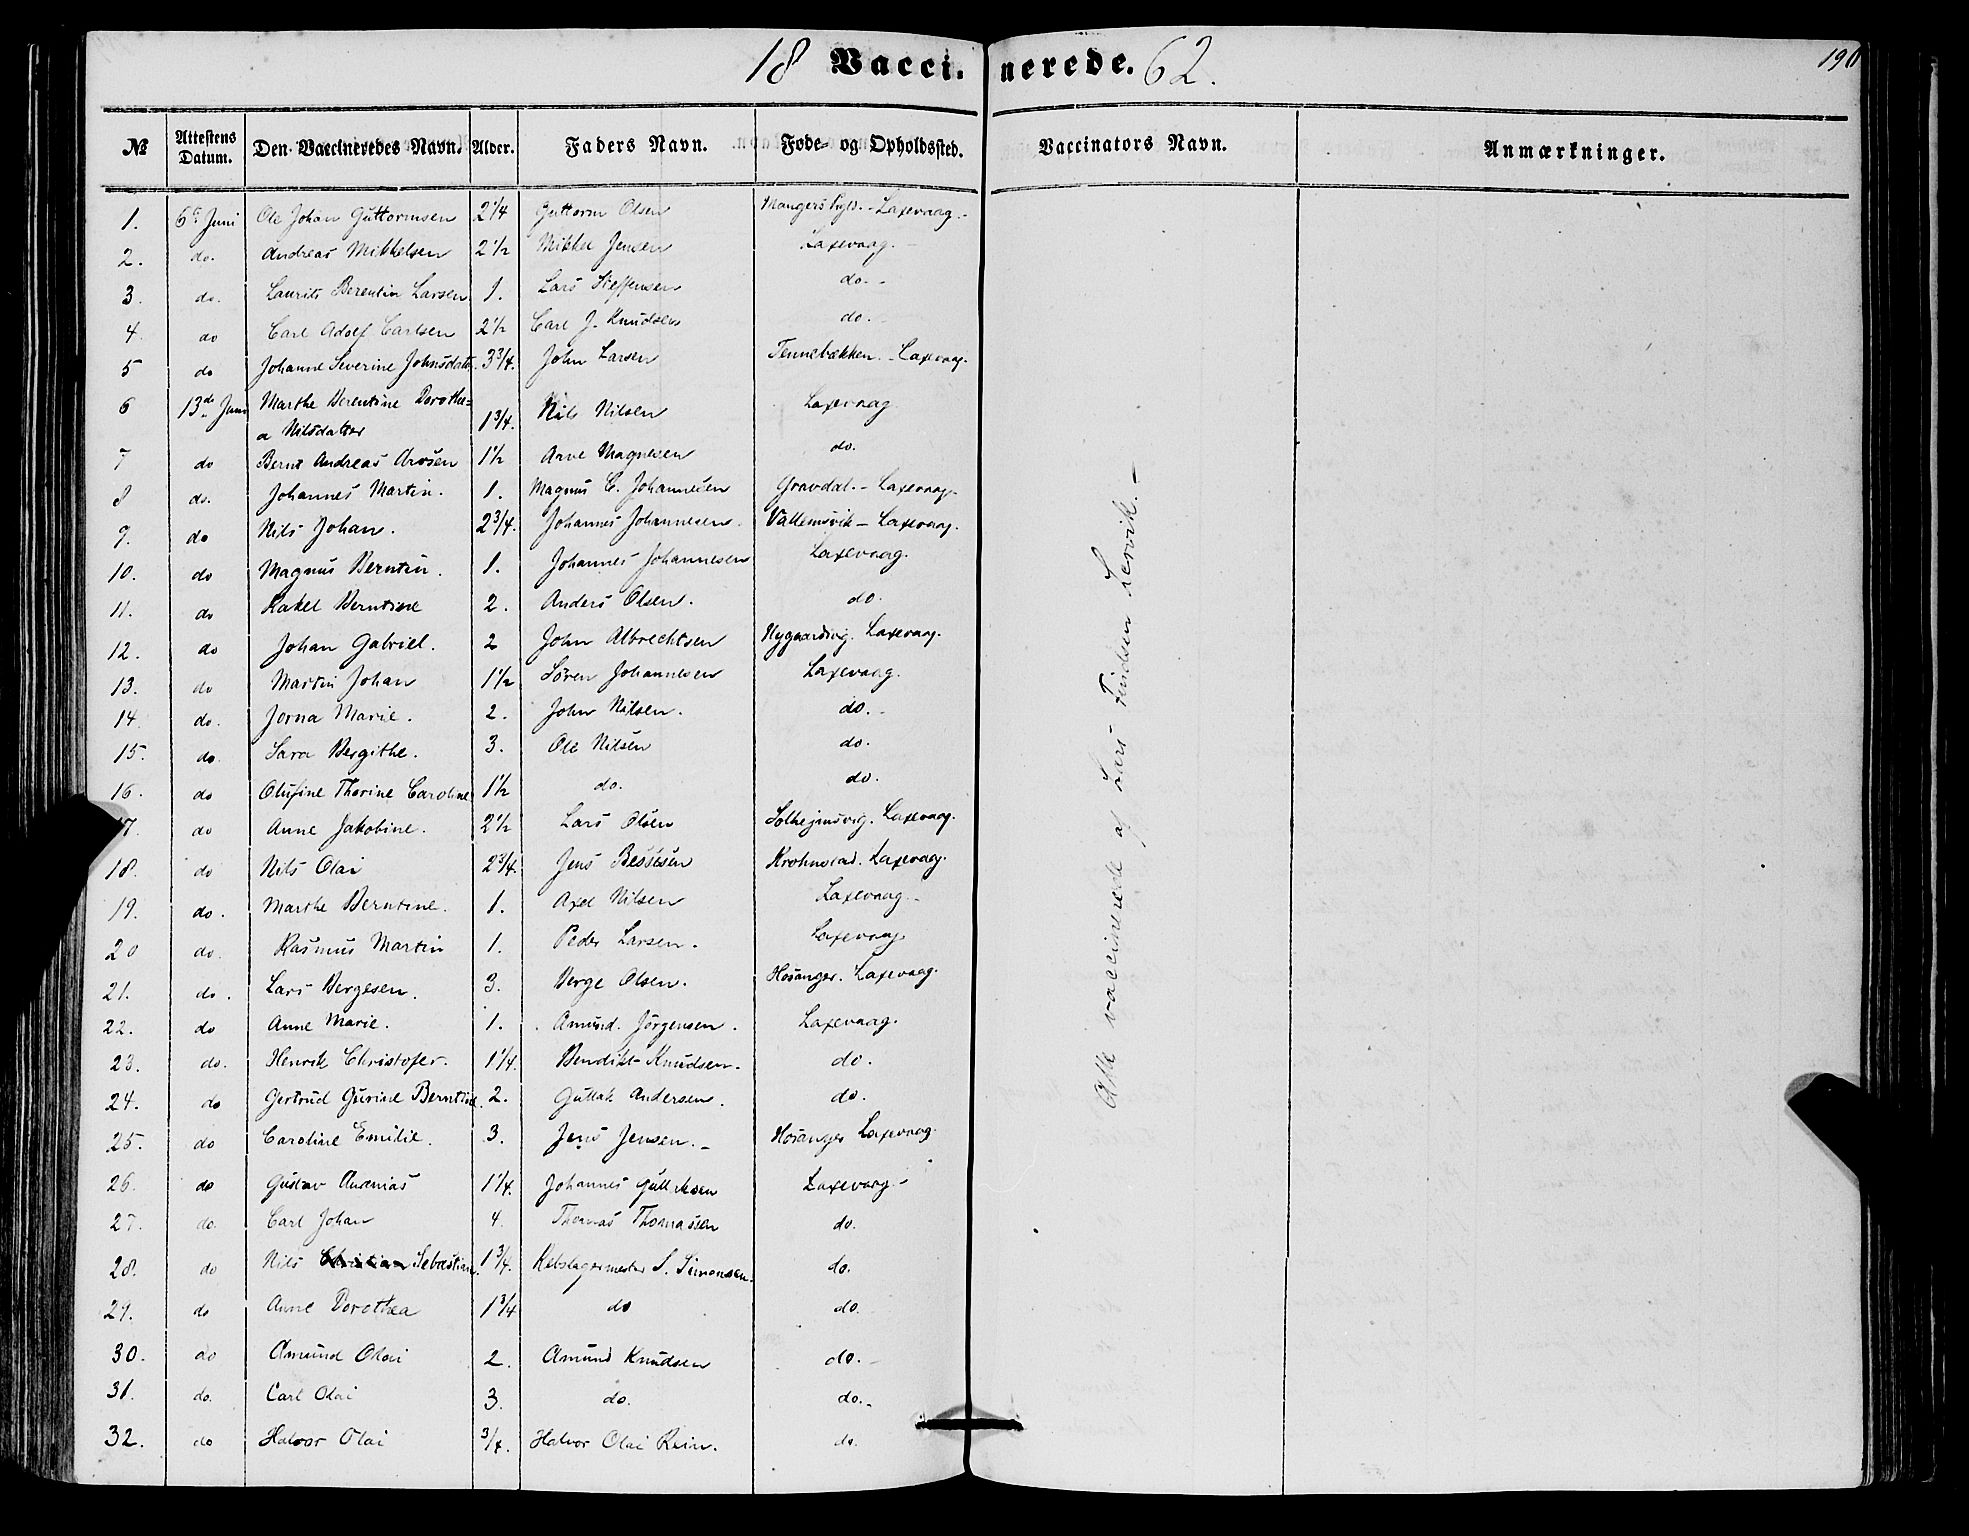 18 Vaccinerede. 62.
196
№ Attestens Datum. Den Vaccineredes Navn. Alder. Faders Navn. Føde- og Opholdssted. Vaccinators Navn. Anmærkninger.
1. 6e Juni Ole Johan Guttormsen 2 1/4 Guttorm Olsen Laxevaag.
2. do. Andreas Mikkelsen 2 1/2 Mikkel Jensen Laxevaag.
3. do. Laurits Berentin Larsen 1. Lars Steffensen do.
4. do Carl Adolf Carlsen 2 1/2 Carl J. Knudsen do.
5 do Johanne Severine Johnsdatr. 3 3/4. John Larsen Tennebækken. Laxevaag.
6 13de Juni Marthe Berentine Dorothe=
a Nilsdatter 1 3/4. Nils Nilsen Laxevaag
7 do Bernt Andreas Arvesen 1 1/2 Arve Magnesen do.
8 do. Johannes Martin. 1. Magnus C. Johannesen Gravdal. - Laxevaag.
9. do Nils Johan. 2 3/4. Johannes Johannesen. Laxevaag.
10. do Magnus Berntin. 1. Johannes Johannesen Laxevaag.
11. do Rakel Berntine 2. Anders Olsen. do.
12. do Johan Gabriel. 2 John Albrechtsen Nygaardsvig. Laxevaag.
13. do Martin Johan 1 1/2 Sören Johannesen Laxevaag.
14. do. Jorna Marie. 2. John Nilsen. do.
15. do. Sara Bergithe. 3. Ole Nilsen do.
16. do Olufine Thorine Caroline 1 1/2 do. do.
17. do Anne Jakobine. 2 1/2 Lars Olsen Solhejmsvig. Laxevaag.
18. do Nils Olai 2 3/4. Jens Bessesen Laxevaag.
19. do. Marthe Berntine. 1. Axel Nilsen Laxevaag.
20 do. Rasmus Martin 1. Peder Larsen. Laxevaag.
21. do. Lars Bergesen. 3. Berge Olsen. Hosanger. Laxevaag.
22. do Anne Marie. 1. Amund Jørgensen. Laxevaag.
23. do. Henrik Christofer. 1 1/4. Bendikt Knudsen. do.
24. do Gertrud Gurine Berntine. 2. Gullak Andersen. do.
25. do Caroline Emilie. 3. Jens Jensen. Hosanger Laxevaag.
26. do Gustav Ananias 1 1/4. Johannes Gullaksen Laxevaag.
27. do. Carl Johan 4. Thomas Thomassen do.
28. do Nils Christian Sebastian. 1 3/4. Rebslagermester S. Simonsen. do.
29. do Anne Dorothea 1 3/4 do do.
30. do Amund Olai 2. Amund Knudsen do.
31. do. Carl Olai 3. do. do.
32. do Halvor Olai 3/4. Halvor Olai Rein. do.
Alle vaccinerede af Lars Lervik.